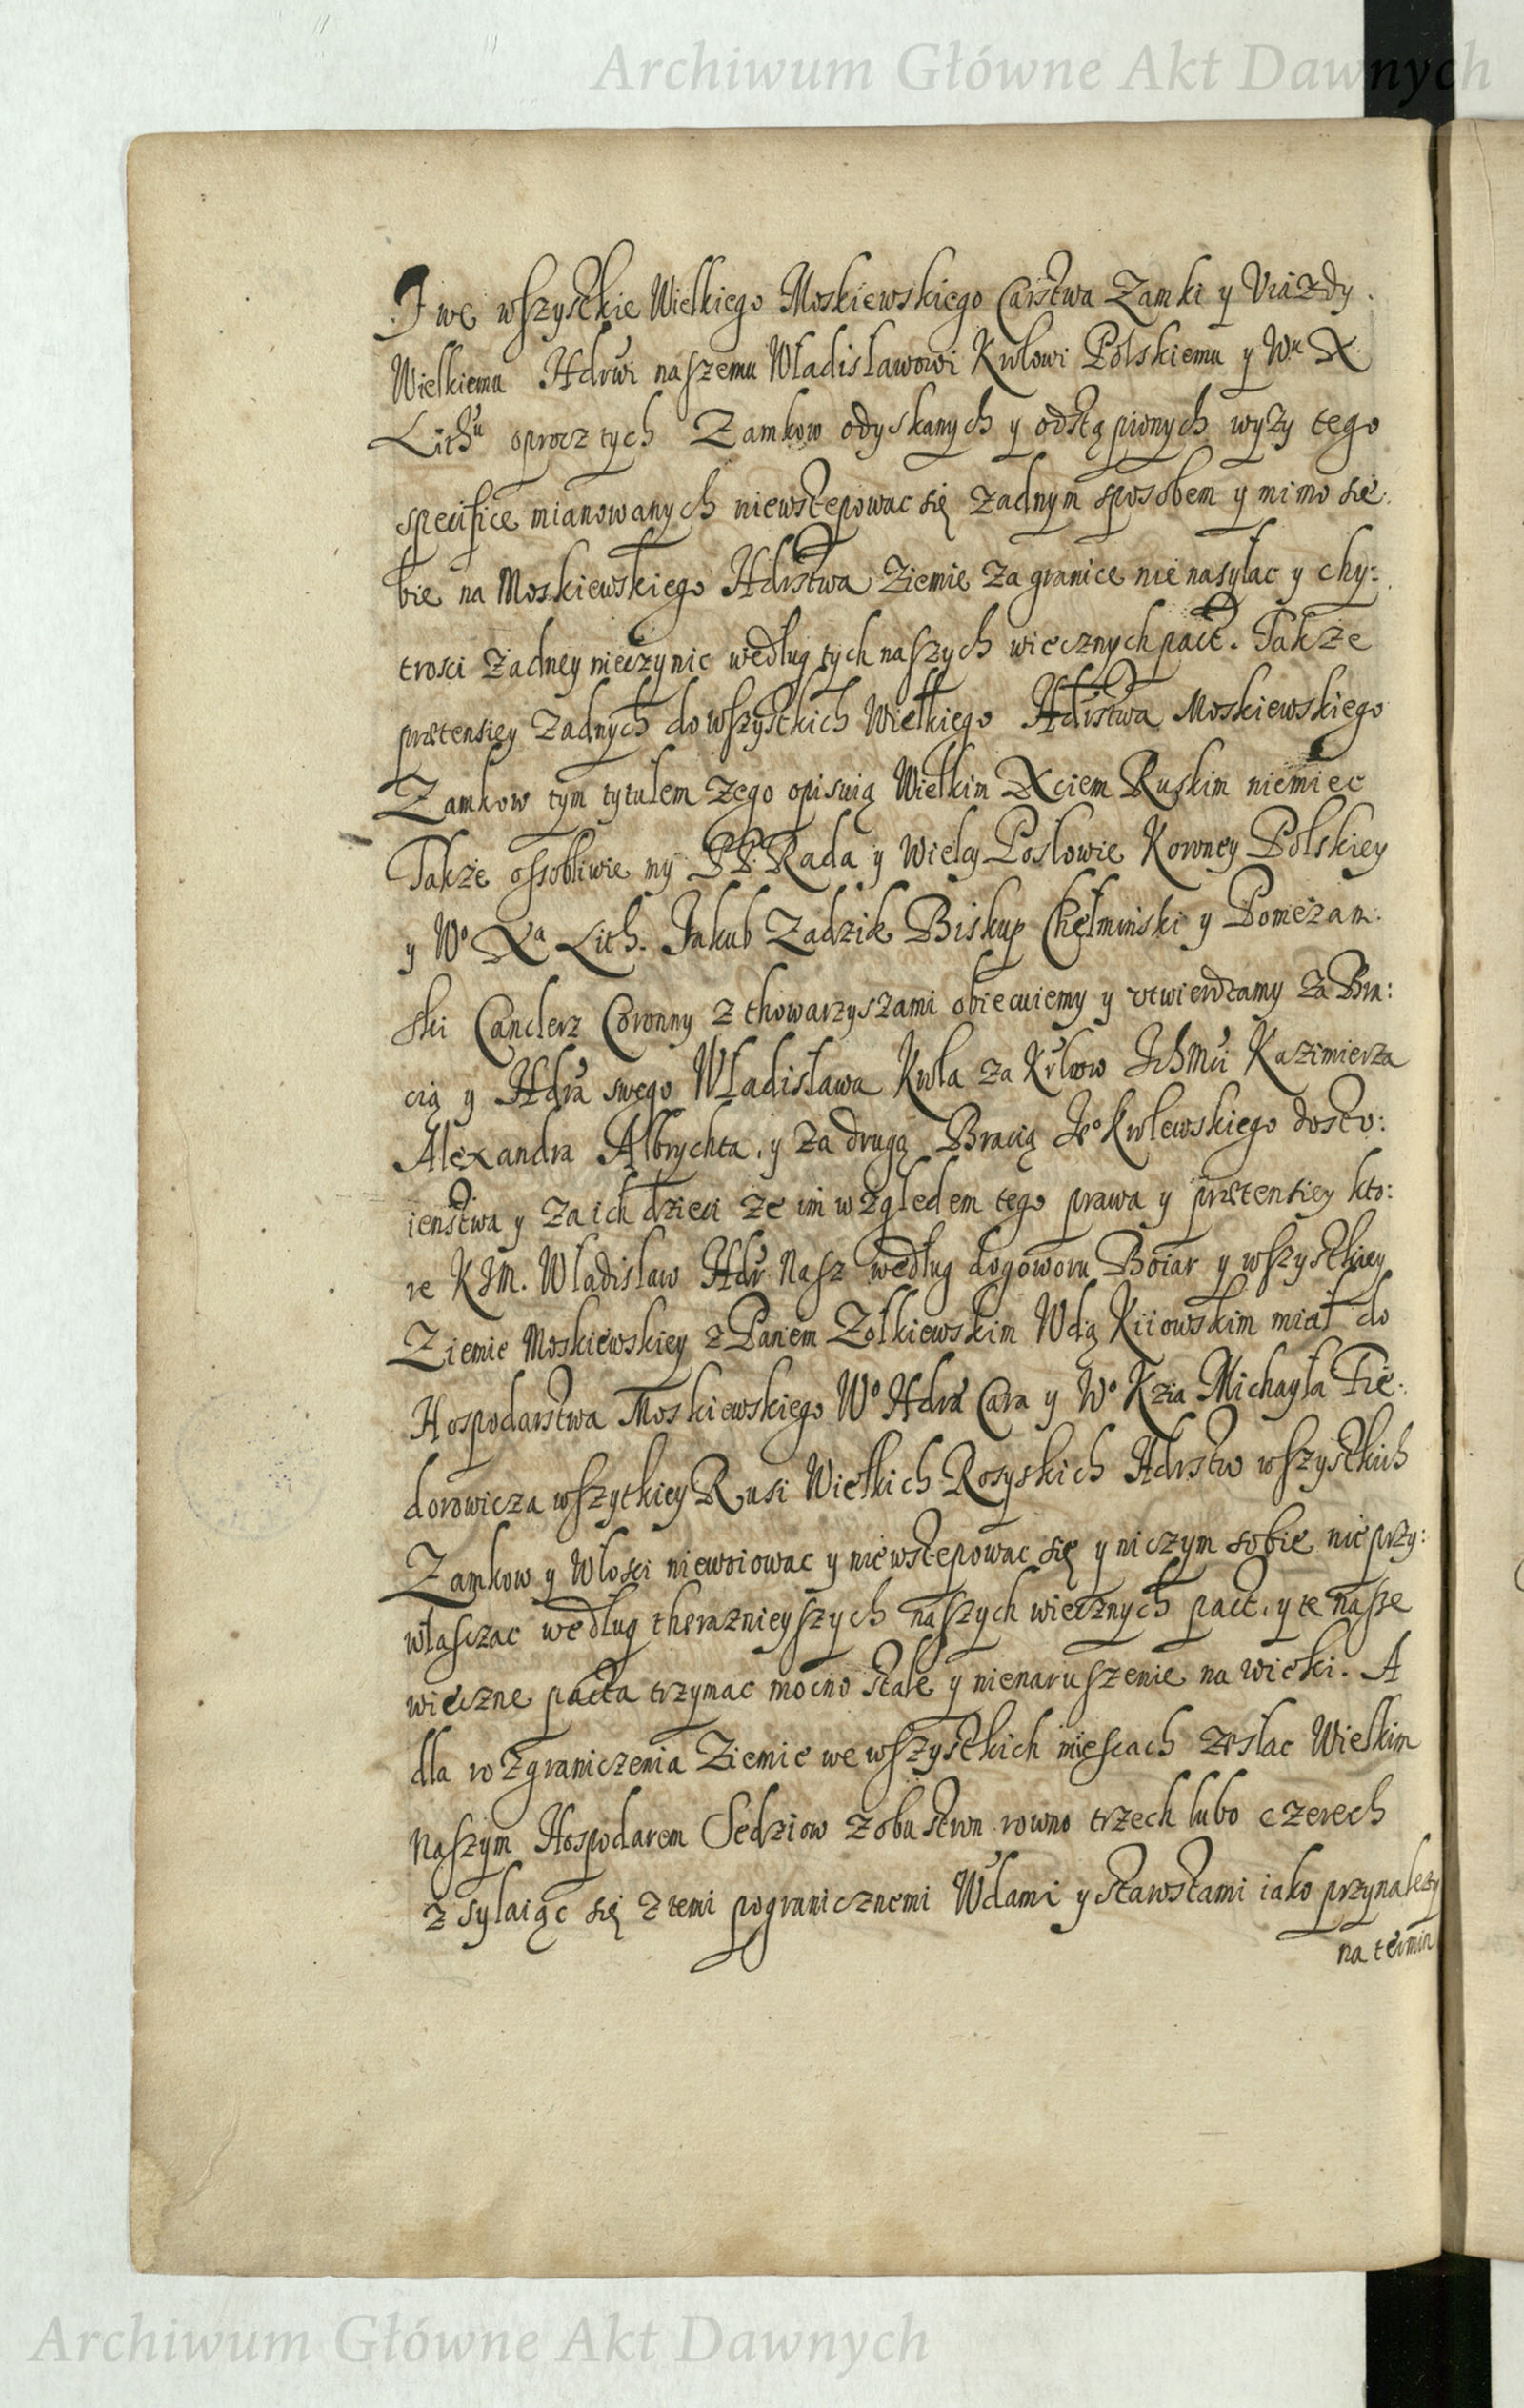 Archiwum Główne Akt Dawnych
I we wszystkie Wielkiego Moskiewskiego Carstwa Zamki y Uiazdy
Wielkiemu Hdrwi naszemu Wladislawowi Krolowi Polskiemu y Wu X
Lithu oprocz tych Zamkow odyskanych y odstąpionych wyzy tego
specifice mianowanych niewstepowac się zadnym sposobem y mimo sie:
bie na Moskiewskiego Hdrstwa Ziemie za granice nie nasylac y chy:
trosci żadney nieczynic według tych naszych wiecznych pact. Takze
prætensiey żadnych do wszystkich Wielkiego Hdrstwa Moskiewskiego
Zamkow tym tytulem zego opisuią Wielkim Xciem Ruskim niemiec
Takze ossobliwie my PP. Rada y Wielcy Posłowie Koronney Polskiey
y Wo Xa Lith. Jakub Zadzik Biskup Chełminski y Pomezan:
ski Canclerz Coronny z thowarzyszami obiecuiemy y utwierdzamy za Bra:
cią y Hdra swego Władisława Krola za Krlwow Ichmci Kazimierza
Alexandra Albrychta, y za drugą Bracią Jeo Krolewskiego dosto:
ienstwa y za ich dzieci ze im względem tego prawa y prætensiey kto:
re KJM. Wladislaw Hdr Nasz według dogoworu Boiar y wszystkiey
Ziemie Moskiewskiey z Paniem Zolkiewskim Wdą Kiiowskim miał do
Hospodarstwa Moskiewskiego Wo Hdra Cara y Wo Kzia Michayła Fie:
dorowicza wszytkiey Rusi Wielkich Rosyskich Hdrstw wszystkich
Zamkow y Włosci niewoiowac y niewstepowac się y niczym sobie nie przy:
własczac według theraznieyszych naszych wiecznych pact, y te nasze
wieczne pacta trzymac mocno stale y nienaruszenie na wieki. A
dla rozgraniczenia Ziemie we wszystkich miescach zesłac Wielkim
Naszym Hospodarem Sedziow z obu stron rowno trzech lubo czerech
z sylaiąc się z temi pogranicznemi Wdami y stawstami iako przynalezy
na termin
Archiwum Główne Akt Dawnych